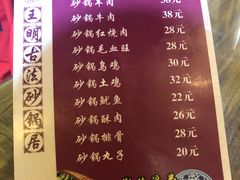 王明古法砂锅居
38元
砂锅牛肉 38元
砂锅红烧肉 28元
砂锅毛血旺 28元
砂锅乌鸡 30元
砂锅土鸡 32元
砂锅鱿鱼 22元
砂锅酥肉 26元
砂锅排骨 28元
砂锅丸子 20元